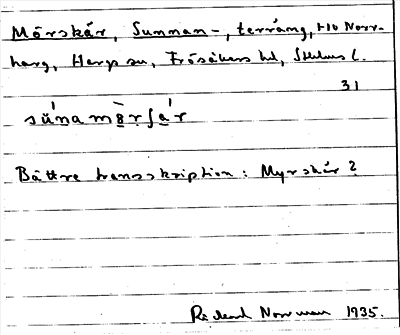 Mörskär, Sunnan-, terräng, t-io Norr-
harg, Hargs sn, Frösåkers hd, Sthlms l.
31
sú̀namær∫ár
Bättre transskription: Myrskär?
Rickard Norrman 1935.